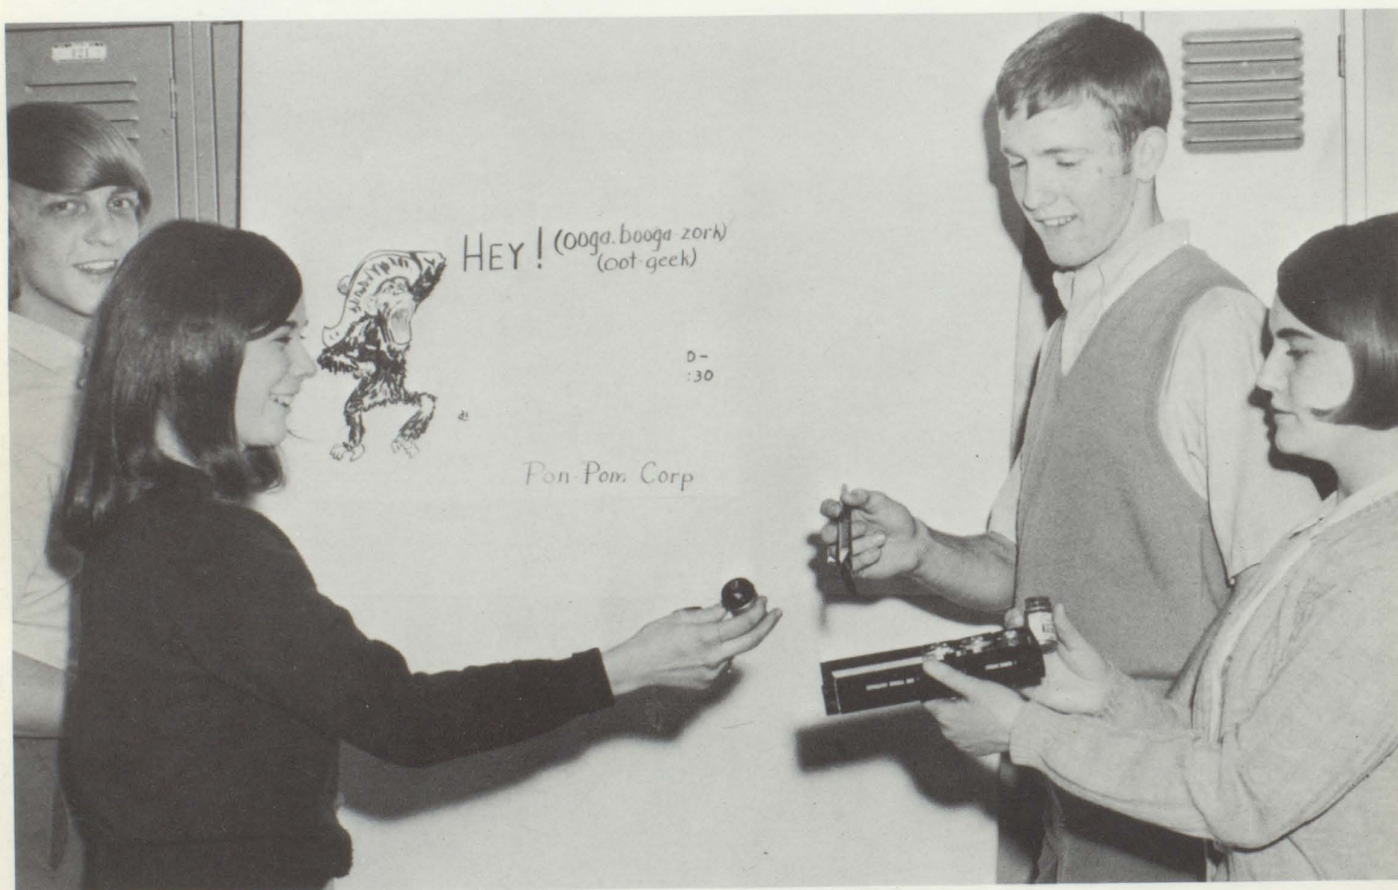 121
HEY! (ooga.booga-zork)
(oot-geek)
D-
:30
Pon-Pom Corp